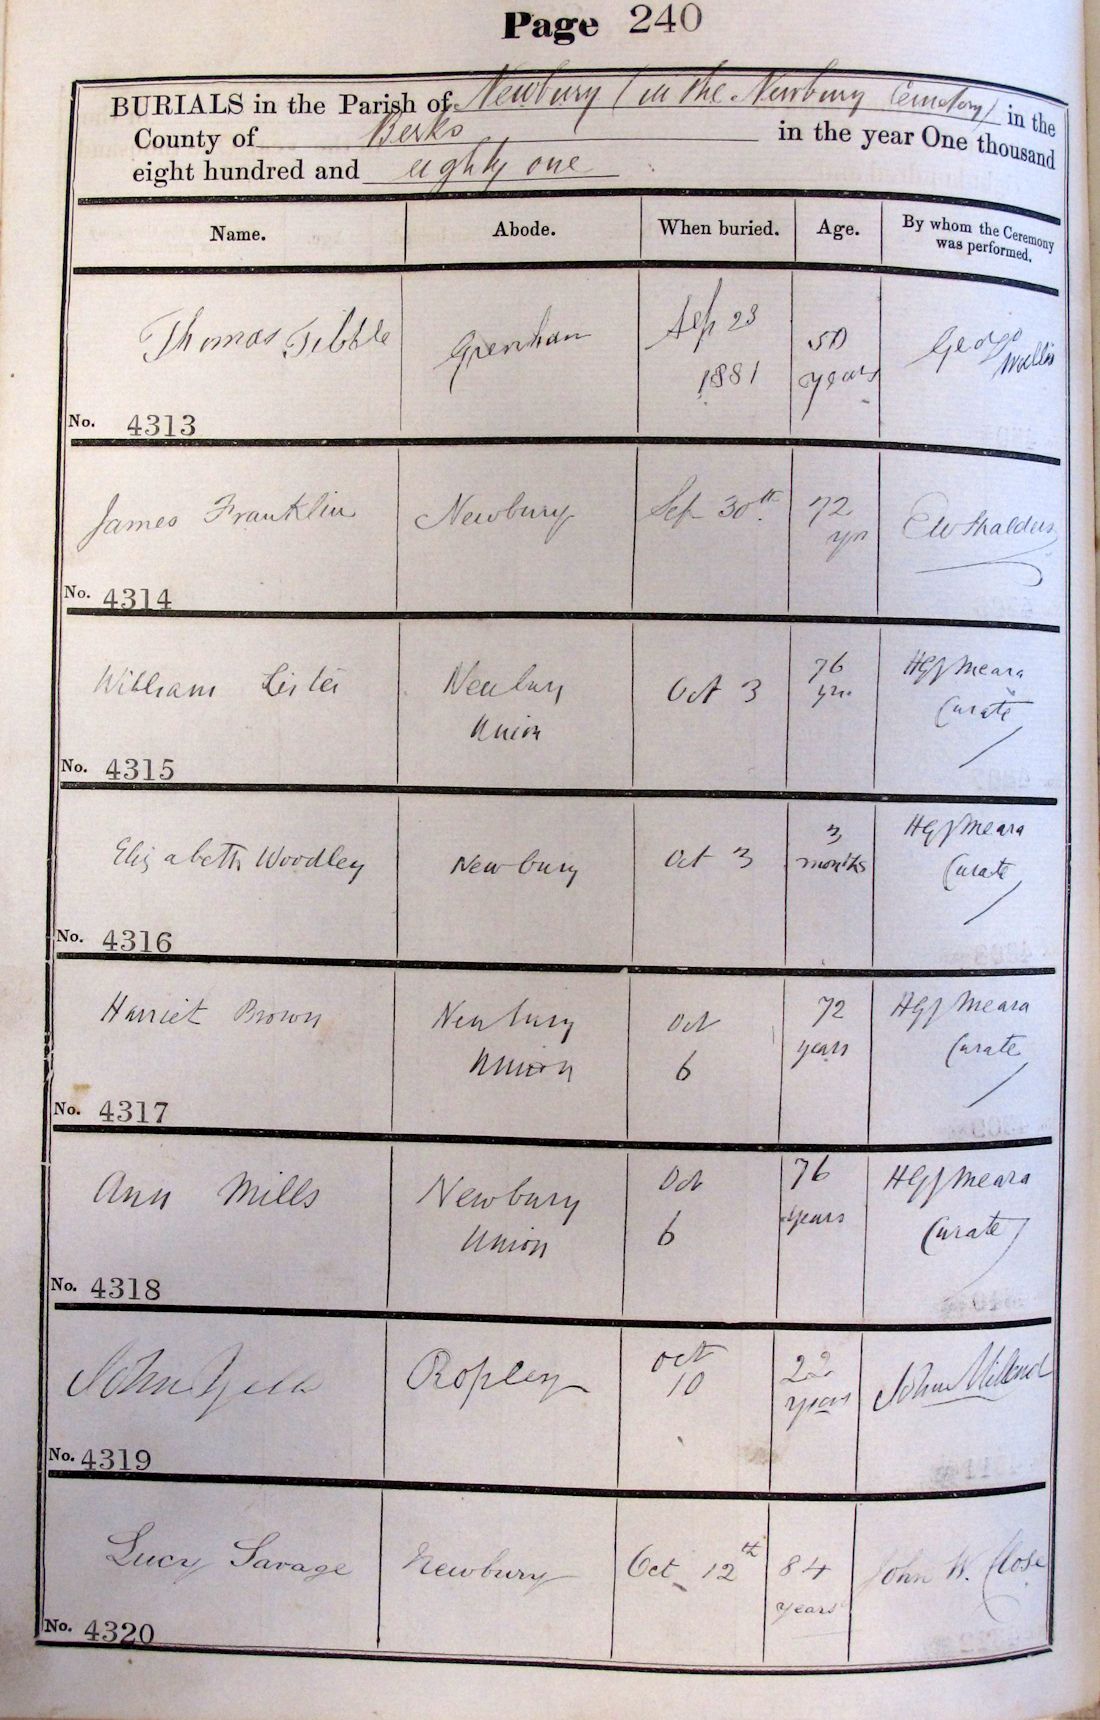 Page 240
BURIALS in the Parish of Newbury (in the Newbury Cemetery) in the
County of Berks in the year One thousand
eight hundred and eighty one
Name. Abode. When buried. Age. By whom the Ceremony was performed.
Thomas Tibble Greenham Sep 23 1881 50 years George Wallis
No. 4313
James Franklin Newbury Sep 30th 72 yrs E W Shalders
No. 4314
William Lister Newbury Union Oct 3 76 yrs HGJ Meara Curate
No. 4315
Elizabeth Woodley Newbury Oct 3 3 months HGJ Meara Curate
No. 4316
Harriet Brown Newbury Union Oct 6 72 years HGJ Meara Curate
No. 4317
Ann Mills Newbury Union Oct 6 76 years HGJ Meara Curate
No. 4318
John Ropley Oct 10 22 years John
No. 4319
Lucy Savage Newbury Oct 12th 84 years John W. Close
No. 4320